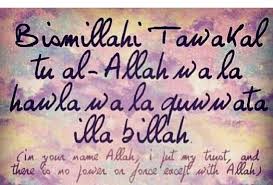 Bismillahi Tawakal
tu al-Allah wa la
hawla wa la quwwata
illa billah
(im your name Allah, i put my trust, and
there is no power or force except with Allah)